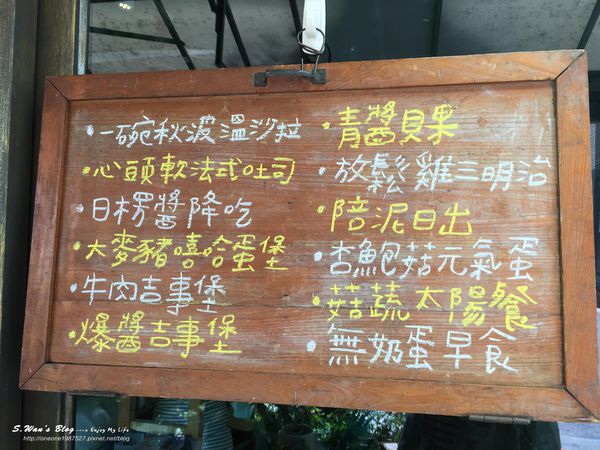 ·一碗秋波溫沙拉
·心頭軟法式吐司
·日楞醬降吃
·大麥豬嘻哈蛋堡
·牛肉吉事堡
·爆醬吉事堡
·青醬貝果
·放鬆雞三明治
·陪泥日出
·杏鮑菇元氣蛋
·菇蔬太陽餐
·無奶蛋早食
S.Wan's Blog ---> Enjoy My Life
http://oneone1987527.pixnet.net/blog